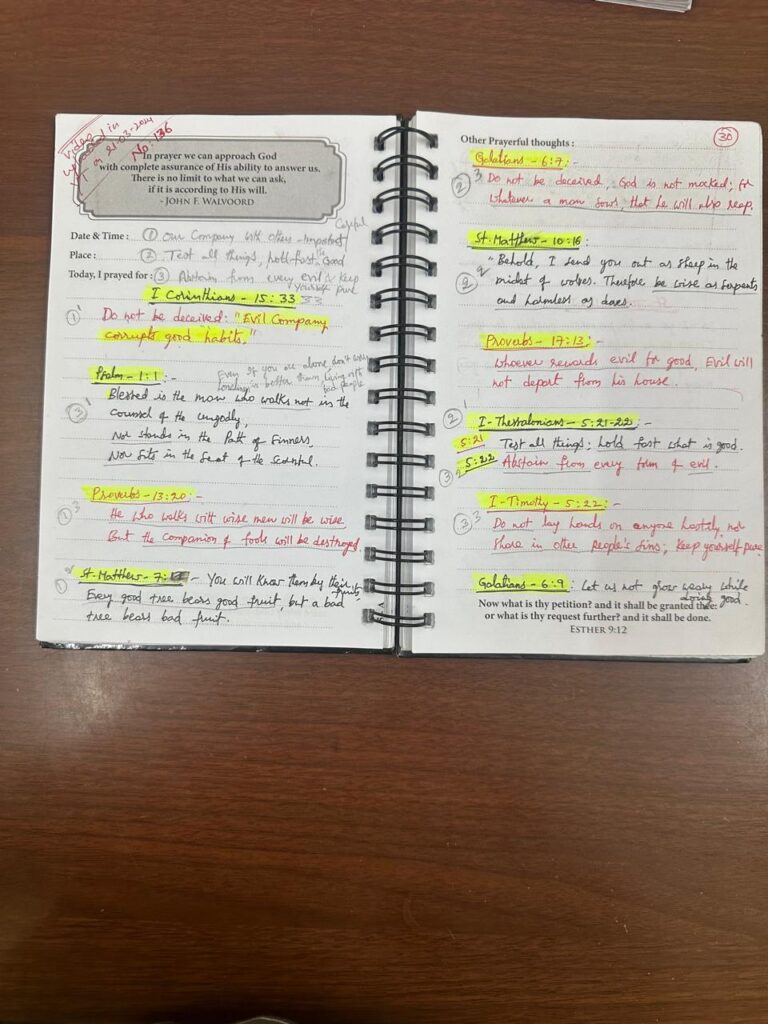 Video
uploaded in
YT on 21-03-2024
No: 136
In prayer we can approach God
with complete assurance of His ability to answer us.
There is no limit to what we can ask,
if it is according to His will.
- JOHN F. WALVOORD
Careful
Date & Time : ① Our Company with others - Important
Place : ② Test all things, hold fast Good
Today, I prayed for : ③ Abstain from every evil & keep
yourself pure
I Corinthians - 15:33 33
① Do not be deceived: "Evil Company
corrupts good habits."
Psalm - 1:1 :-
Even if you are alone don't worry
loneliness is better than living with
bad people
Blessed is the man who walks not in the
③ counsel of the ungodly,
Nor stands in the Path of Sinners,
Nor Sits in the Seat of the Scornful.
Proverbs - 13:20 :-
① He who walks with wise men will be wise
But the companion of fools will be destroyed.
① St. Matthew - 7: - You will know them by their
fruits,
Every good tree bears good fruit, but a bad
tree bears bad fruit.
Other Prayerful thoughts :
30
Galatians - 6:7 :-
② 3 Do not be deceived, God is not mocked; for
whatever a man sows, that he will also reap.
St. Matthew - 10:16 :
"Behold, I send you out as sheep in the
② midst of wolves. Therefore be wise as serpents
and harmless as doves.
Proverbs - 17:13 :-
Whoever rewards evil for good, Evil will
not depart from his house.
② I - Thessalonians - 5:21-22 :-
5:21 Test all things; hold fast what is good.
③ 5:22 Abstain from every form of evil.
I - Timothy - 5:22 :-
③ 3 Do not lay hands on anyone hastily, nor
Share in other people's sins; Keep yourself pure
Galatians - 6:9 : Let us not grow weary while
doing good.
Now what is thy petition? and it shall be granted thee:
or what is thy request further? and it shall be done.
ESTHER 9:12